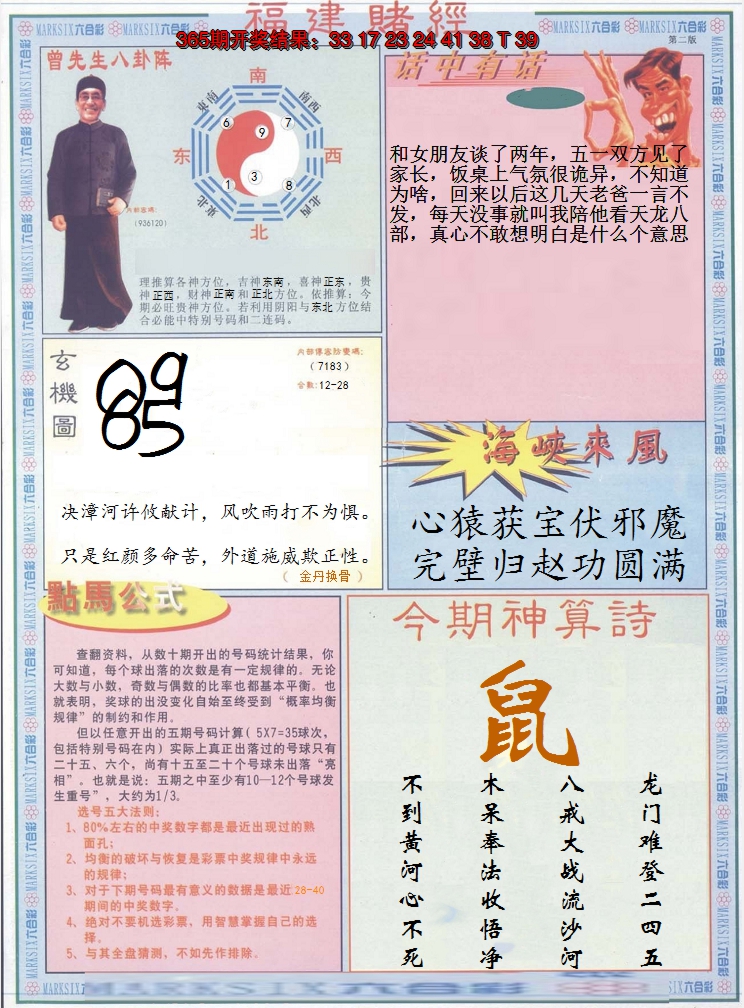 福建賭經
365期开奖结果：33 17 23 24 41 38 T 39
MARKSIX六合彩
第二版
曾先生八卦阵
南
东南
南西
6
9
7
东
西
1
3
8
東北
北西
北
内部密碼：
（936120）
理推算各神方位，吉神东南，喜神正东，贵
神正西，财神正南和正北方位。依推算：今
期必旺贵神方位。若利用阴阳与东北方位结
合必能中特别号码和二连码。
话中有话
和女朋友谈了两年，五一双方见了
家长，饭桌上气氛很诡异，不知道
为啥，回来以后这几天老爸一言不
发，每天没事就叫我陪他看天龙八
部，真心不敢想明白是什么个意思
玄機圖
09
65
（7183）
合数:12-28
决漳河许攸献计，风吹雨打不为惧。
只是红颜多命苦，外道施威欺正性。
（ 金丹换骨 ）
海峡來风
心猿获宝伏邪魔
完壁归赵功圆满
點馬公式
查翻资料，从数十期开出的号码统计结果，你
可知道，每个球出落的次数是有一定规律的。无论
大数与小数，奇数与偶数的比率也都基本平衡。也
就表明，奖球的出没变化自始至终受到“概率均衡
规律”的制约和作用。
但以任意开出的五期号码计算( 5X7=35球次，
包括特别号码在内) 实际上真正出落过的号球只有
二十五、六个，尚有十五至二十个号球未出落“亮
相”。也就是说：五期之中至少有10—12个号球发
生重号”，大约为1/3。
选号五大法则：
1、80%左右的中奖数字都是最近出现过的熟
面孔；
2、均衡的破坏与恢复是彩票中奖规律中永远
的规律；
3、对于下期号码最有意义的数据是最近28-40
期间的中奖数字。
4、绝对不要机选彩票，用智慧掌握自己的选
择。
5、与其全盘猜测，不如先作排除。
今期神算詩
鼠
龙门难登二四五
八戒大战流沙河
木呆奉法收悟净
不到黄河心不死